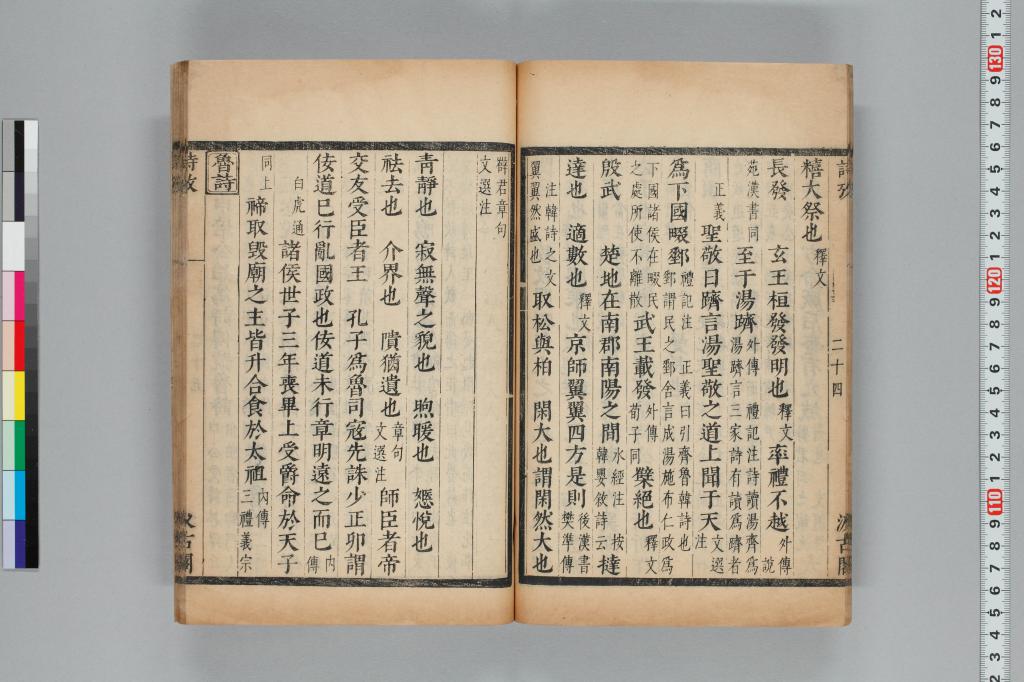 糦大祭也釋文
長發　玄王桓發發明也釋文率禮不越外傳說
苑漢書同　至于湯躋外傳　禮記注詩讀湯齊爲湯躋言三家詩有讀爲躋者
正義　聖敬日躋言湯聖敬之道上聞于天文選注
爲下國畷郵禮記注　正義曰引齊魯韓詩也郵謂民之郵舍言成湯施布仁政爲
下國諸侯在畷民之處所使不離散　武王載發荀子外傳同　櫱絕也釋文
殷武　楚地在南郡南陽之間水經注　按韓嬰敘詩云　撻
達也　適數也釋文　京師翼翼四方是則後漢書樊準傳
注韓詩之文翼翼然盛也　取松與柏　閑大也謂閑然大也
薛君章句文選注
靑靜也　寂無聲之貌也　煦暖也　愿悅也
祛去也　介界也　隤猶遺也章句文選注　師臣者帝
交友受臣者王　孔子爲魯司寇先誅少正卯謂
佞道已行亂國政也佞道未行章明遠之而已內傳
白虎通　諸侯世子三年喪畢上受爵命於天子
同上　禘取毀廟之主皆升合食於太祖內傳三禮義宗
魯詩
詩攷
二十四
汲古閣